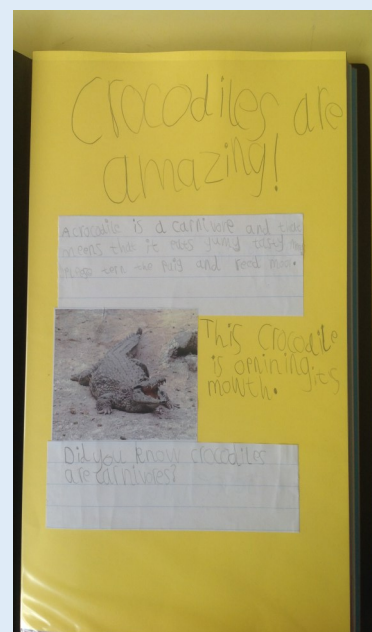 Crocodiles are
amazing!
A crocodile is a carnivore and that
means that it eats yummy tasty
please turn the page and read more.
This Crocodile
is opnining its
mouth.
Did you know crocodiles
are carnivores?